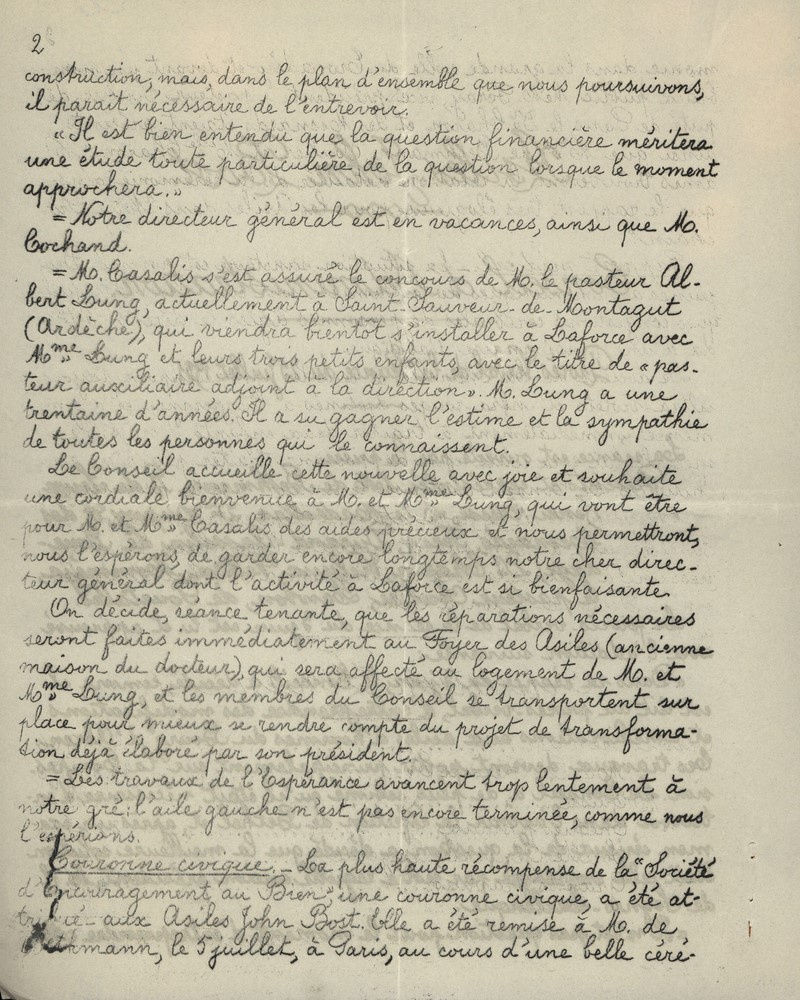 2
construction; mais, dans le plan d'ensemble que nous poursuivons,
il paraît nécessaire de l'entrevoir.
"Il est bien entendu que la question financière méritera
une étude toute particulière, de la question lorsque le moment
approchera."
= Notre directeur général est en vacances, ainsi que M.
Cochand.
= M. Casalis s'est assuré le concours de M. le pasteur Al-
bert Lung, actuellement à Saint-Sauveur-de-Montagut
(Ardèche), qui viendra bientôt s'installer à Laforce avec
Mme Lung et leurs trois petits enfants, avec le titre de "pas-
teur auxiliaire adjoint à la direction". M. Lung a une
trentaine d'années. Il a su gagner l'estime et la sympathie
de toutes les personnes qui le connaissent.
Le Conseil accueille cette nouvelle avec joie et souhaite
une cordiale bienvenue à M. et Mme Lung, qui vont être
pour M. et Mme Casalis des aides précieux et nous permettront,
nous l'espérons, de garder encore longtemps notre cher direc-
teur général dont l'activité à Laforce est si bienfaisante.
On décide, séance tenante, que les réparations nécessaires
seront faites immédiatement au Foyer des Asiles (ancienne
maison du docteur), qui sera affecté au logement de M. et
Mme Lung, et les membres du Conseil se transportent sur
place pour mieux se rendre compte du projet de transforma-
tion déjà élaboré par son président.
= Les travaux de l'Espérance avancent trop lentement à
notre gré: l'aile gauche n'est pas encore terminée, comme nous
l'espérions.
Couronne civique. - La plus haute récompense de la "Société
d'Encouragement au Bien", une couronne civique, a été at-
tribuée aux Asiles John Bost. Elle a été remise à M. de
le 5 juillet, à Paris, au cours d'une belle céré-